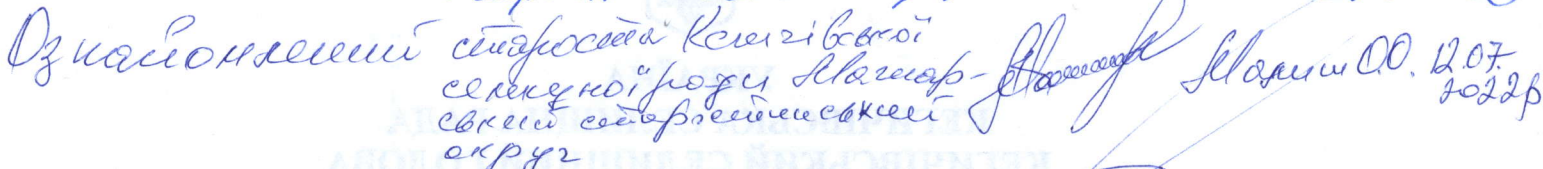 Ознайомлений староста Кегичівської
селищної ради Мажар-
ський старостинський
округ
О.О. 12.07.
2022р